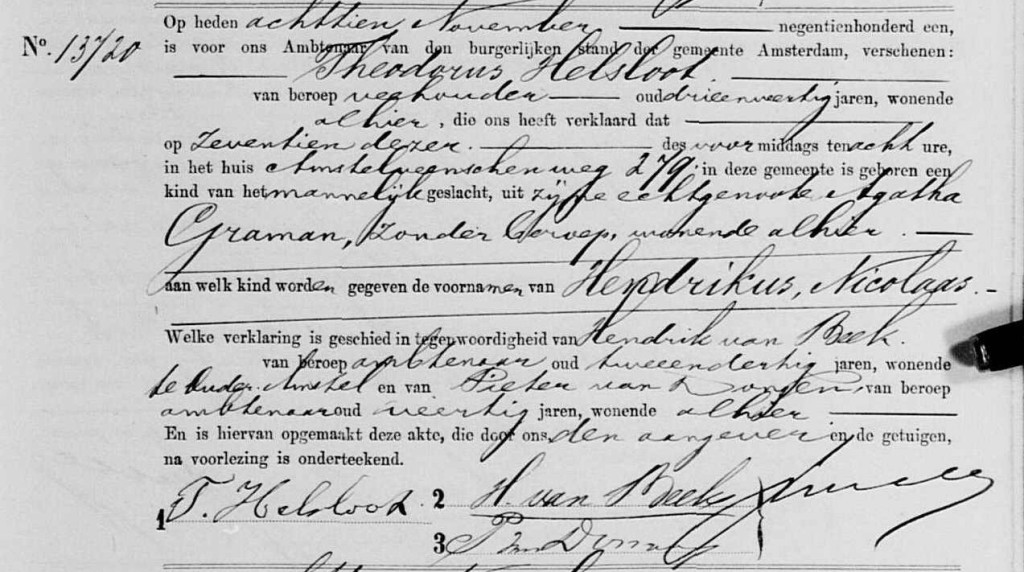 Op heden achttien November negentienhonderd een,
No. 13720 is voor ons Ambtenaar van den burgerlijken stand der gemeente Amsterdam, verschenen:
Theodorus Helsloot.
van beroep veehouder oud drieenveertig jaren, wonende
alhier, die ons heeft verklaard dat
op Zeventien dezer. des voormiddags ten acht ure,
in het huis Amstelveenschenweg 279; in deze gemeente is geboren een
kind van het mannelijk geslacht, uit zijne echtgenoote Agatha
Graman, zonder beroep, wonende alhier.
aan welk kind worden gegeven de voornamen van Hendrikus, Nicolaas.
Welke verklaring is geschied in tegenwoordigheid van Hendrik van Beek.
van beroep ambtenaar oud tweeendertig jaren, wonende
te Ouder-Amstel en van Pieter van Dongen, van beroep
ambtenaar oud veertig jaren, wonende alhier
En is hiervan opgemaakt deze akte, die door ons, den aangever en de getuigen,
na voorlezing is onderteekend.
1 T. Helsloot. 2 H. van Beek
3 P van Dongen